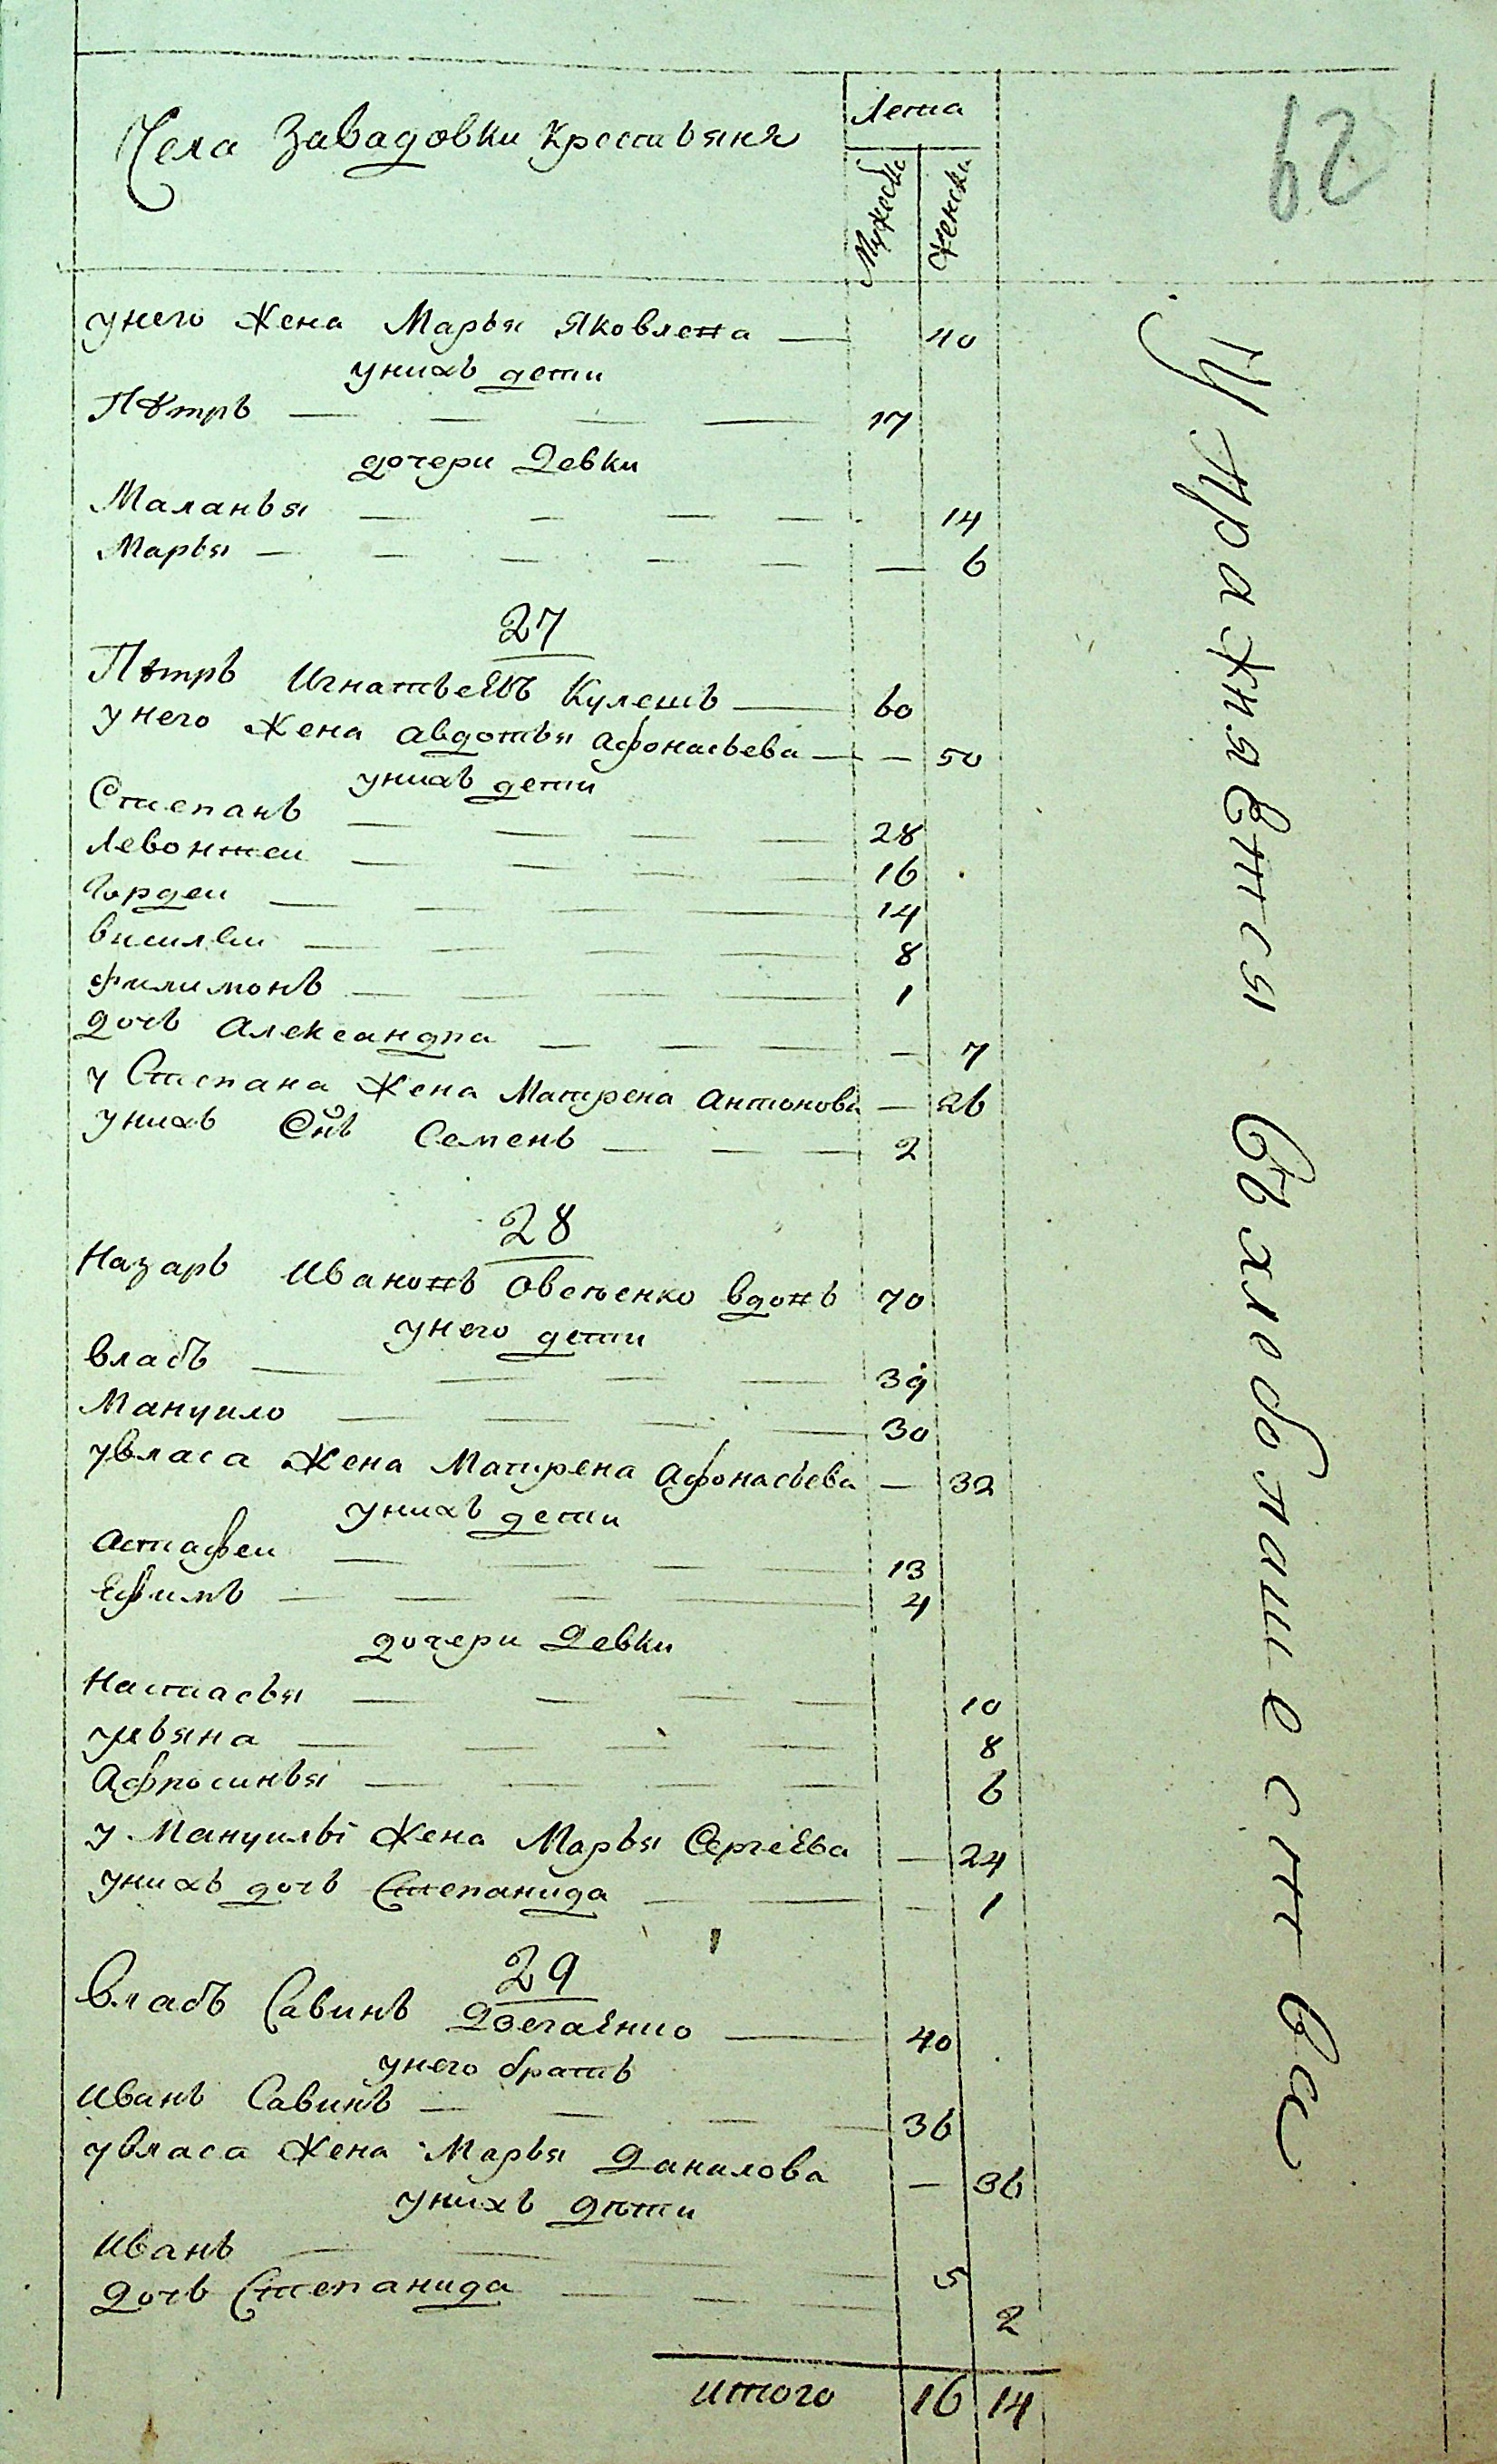 Села Завадовки Крестьяня
Лета
Мужеска
Женска
62
унего жена Марья Яковлева — 40
унихъ дети
Пѣтръ — 17
дочери девки
Маланья — 14
Марья — 6
27
Пѣтръ Игнатьевъ Кулешъ — 60
унего жена авдотья афонасьева — 50
унихъ дети
Степанъ — 28
Левонтеи — 16
Гордеи — 14
василеи — 8
филимонъ — 1
дочь александра — 7
у Степана жена Матрена антонова — 26
унихъ Снъ Семенъ — 2
28
Назаръ Ивановъ вдовъ 70
унего дети
власъ — 39
Мануило — 30
увласа жена Матрена афонасьева — 32
унихъ дети
астафеи — 13
Ефимъ — 4
дочери девки
Настасья — 10
ульяна — 8
афросинья — 6
у Мануилы жена Марья Сергѣева — 24
унихъ дочь Степанида — 1
29
власъ Савинъ — 40
унего братъ
Иванъ Савинъ — 36
увласа жена Марья данилова — 36
унихъ дѣти
Иванъ — 5
дочь Степанида — 2
итого 16 14
Упражняются въ хлебопашестве